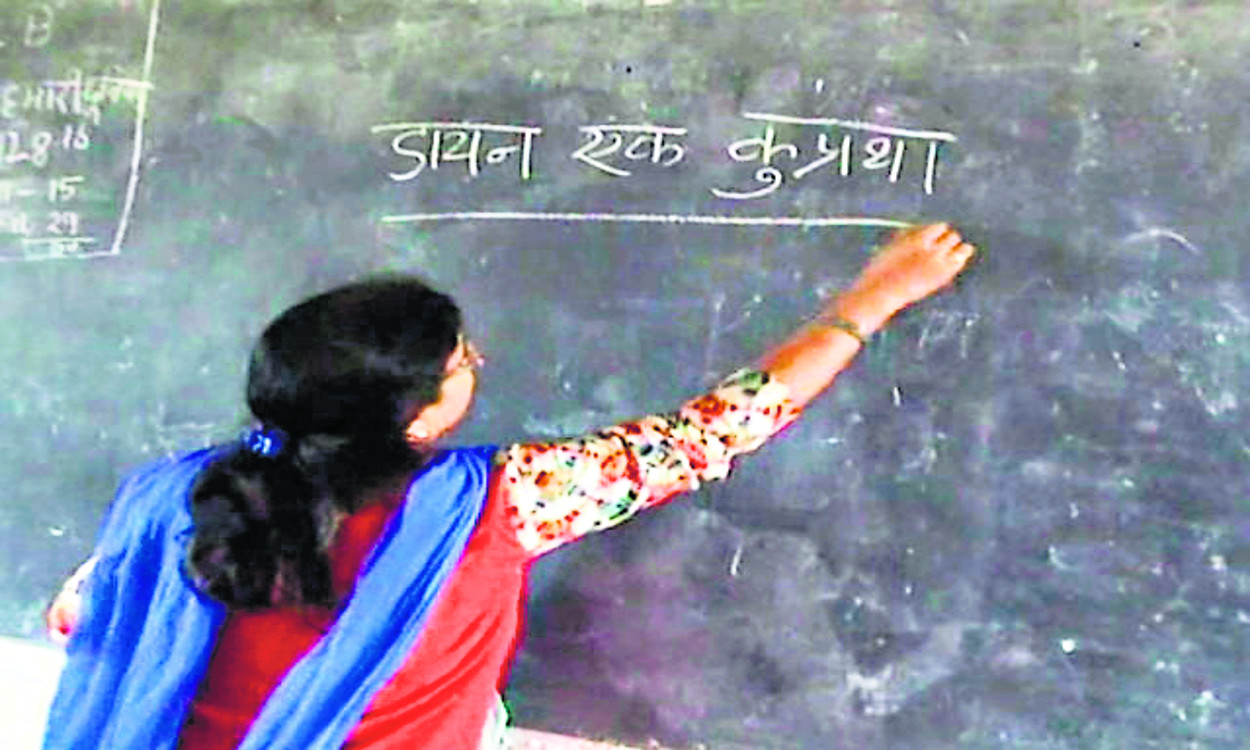 B
12.8.16
15
29
डायन एक कुप्रथा